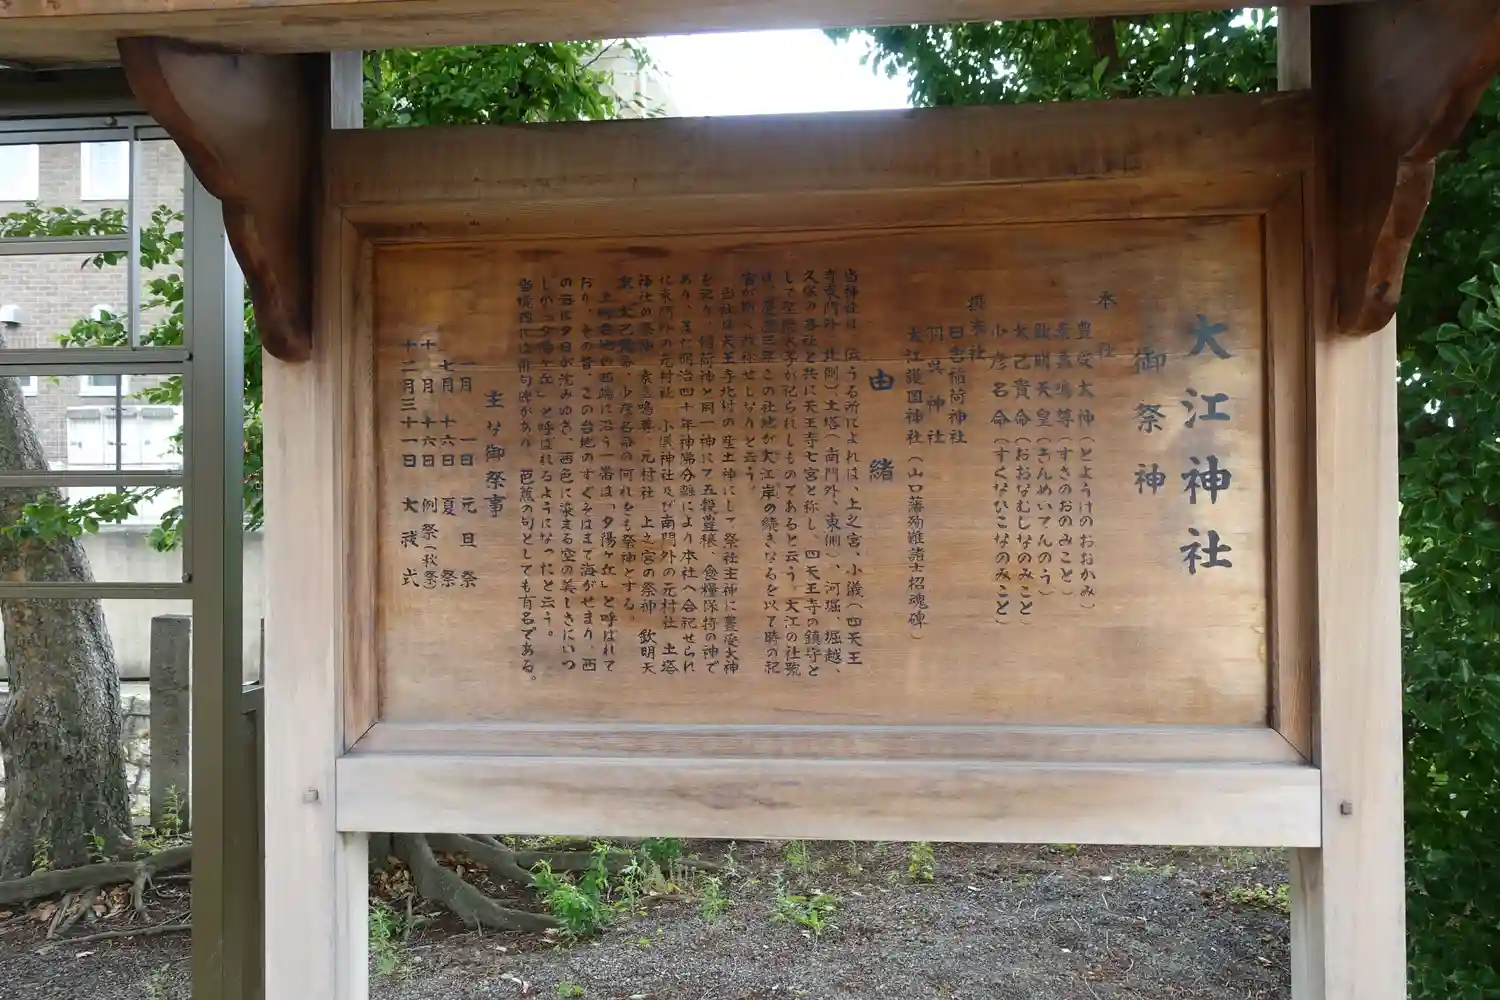 大江神社
御祭神
本社
豊受大神(とようけのおおかみ)
素盞嗚尊(すさのおのみこと)
欽明天皇(きんめいてんのう)
大己貴命(おおなむじなのみこと)
少彦名命(すくなひこなのみこと)
摂末社
日吉稲荷神社
羽呉神社
大江護国神社(山口藩殉難諸士招魂碑)
由緒
当神社は、伝うる所によれは、上之宮、小儀(四天王
寺東門外、北側)土塔(南門外、東側)、河堀、堀越、
久保の各社と共に天王寺七宮と称し、四天王寺の鎮守と
して聖徳太子が祀られしものであると云う。大江の社號
は、この社地が大江岸の続きなるを以て時の
宮が斯く改称せしなりと云う。
当社は天王寺北村の産土神にして祭社主神に豊受大神
を祀り、稲荷神と同一神にて五穀豊穣、食糧保持の神で
あり、明治四十年神佛分離により本社へ合祀せられ
に東門外の元村社 小儀神社及び南門外の元村社 土塔
神社の祭神 素盞嗚尊、元村社 上之宮の祭神 欽明天
皇、大己貴命、少彦名命の何れをも祭神とする。
上町台地の西端に沿う一帯は「夕陽ヶ丘」と呼ばれて
おり、その昔、この台地のすぐそばまで海がせまり、西
の海に夕日が沈みゆき、茜色に染まる空の美しさにいつ
しか「夕陽ヶ丘」と呼ばれるようになったと云う。
当境内には俳句碑があり 芭蕉の句としても有名である。
主な御祭事
一月 一日 元旦祭
七月 十六日 夏祭
十月 十六日 例祭(秋祭)
十二月三十一日 大祓式